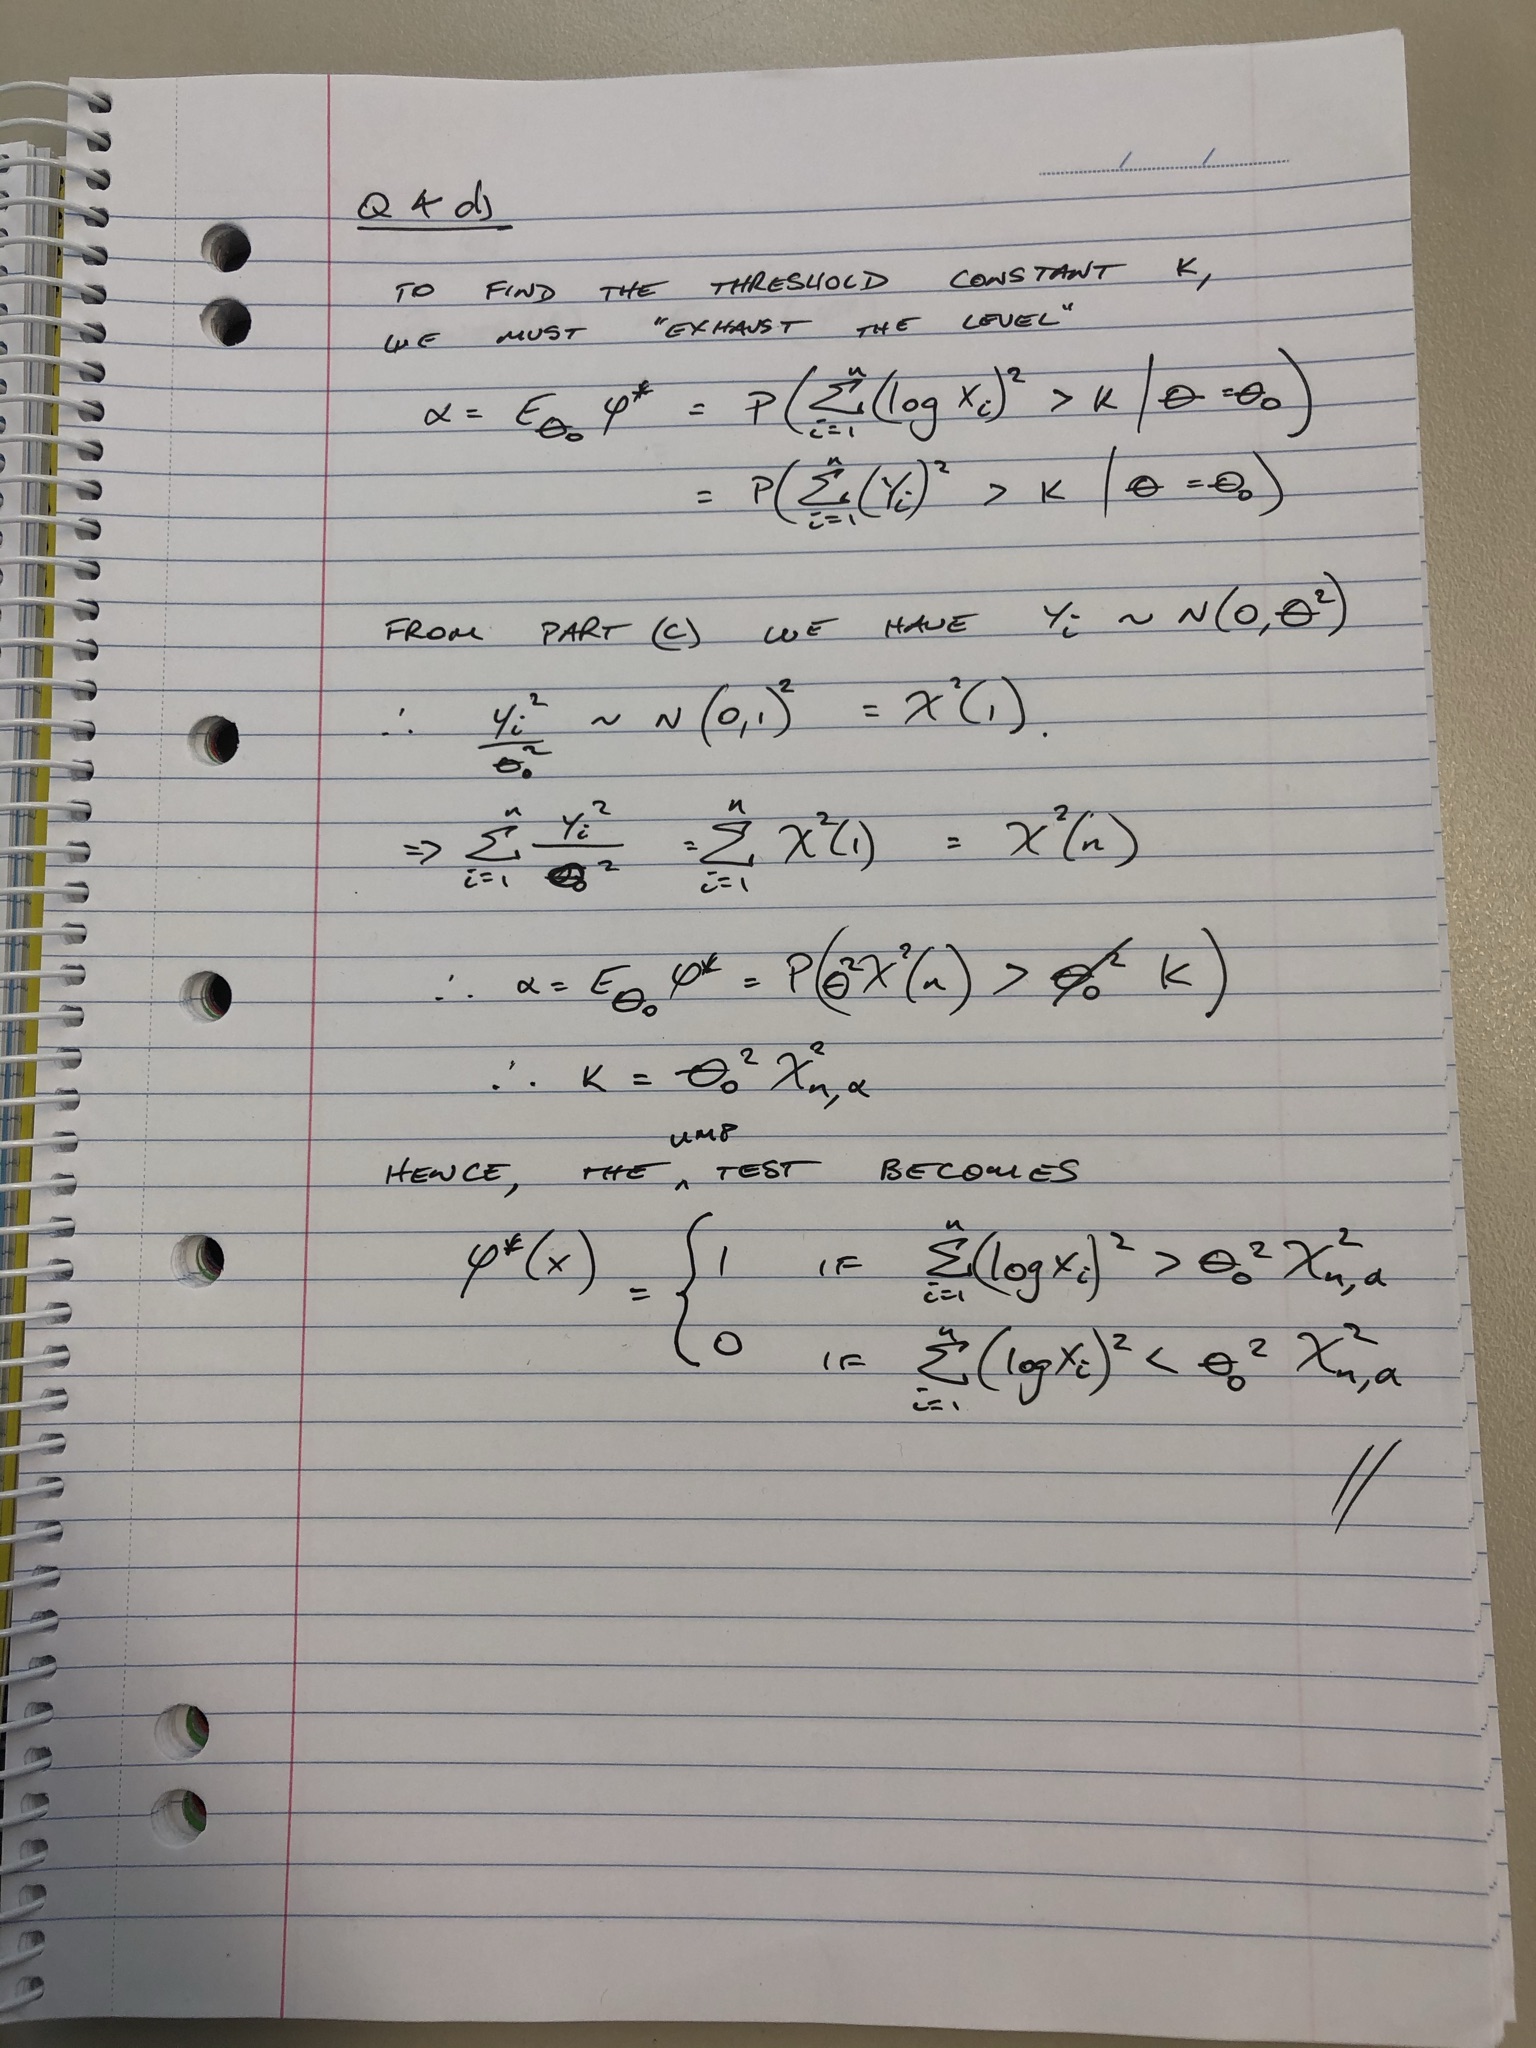 Q 4 d)
TO FIND THE THRESHOLD CONSTANT K,
WE MUST "EXHAUST THE LEVEL"
α = E_{θ₀} φ* = P( ∑_{i=1}^{n} (log Xᵢ)² > K | θ = θ₀ )
= P( ∑_{i=1}^{n} (Yᵢ)² > K | θ = θ₀ )
FROM PART (C) WE HAVE Yᵢ ~ N(0, θ²)
∴ Yᵢ²/θ₀² ~ N(0,1)² = χ²(1).
⇒ ∑_{i=1}^{n} Yᵢ²/θ₀² = ∑_{i=1}^{n} χ²(1) = χ²(n)
∴ α = E_{θ₀} φ* = P( θ₀² χ²(n) > K )
∴ K = θ₀² χ²_{n,α}
HENCE, THE UMP TEST BECOMES
φ*(x) = { 1 IF ∑_{i=1}^{n} (log Xᵢ)² > θ₀² χ²_{n,α}
0 IF ∑_{i=1}^{n} (log Xᵢ)² < θ₀² χ²_{n,α}
//